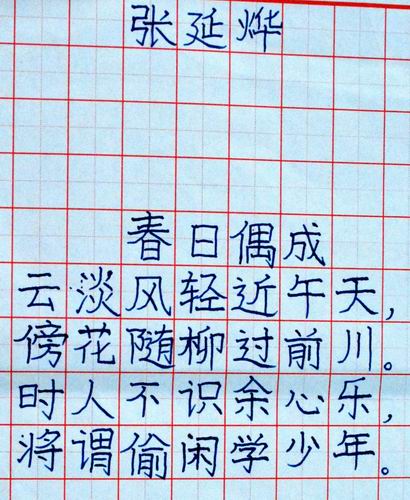 张延烨
春日偶成
云淡风轻近午天,
傍花随柳过前川。
时人不识余心乐,
将谓偷闲学少年。